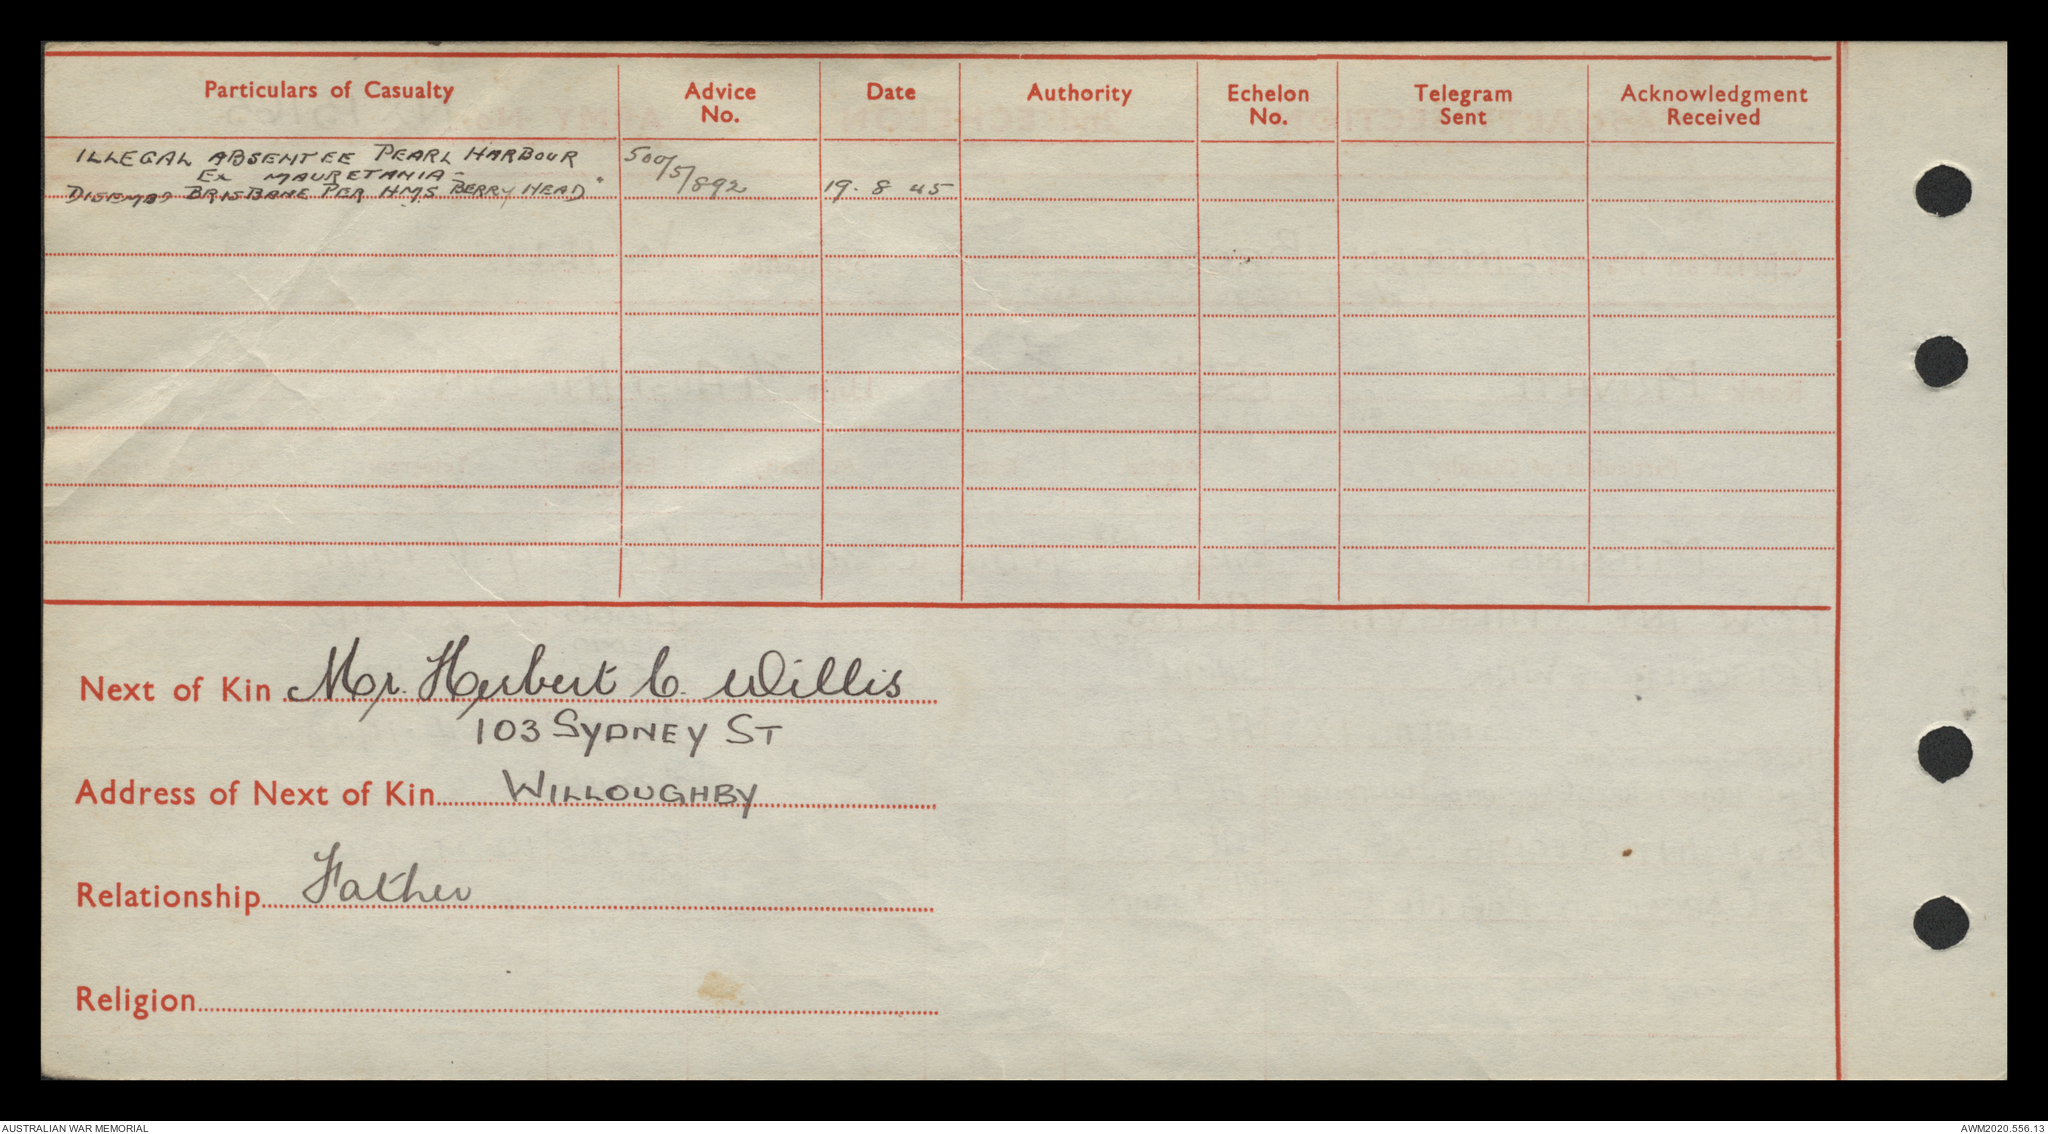 Particulars of Casualty Advice No. Date Authority Echelon No. Telegram Sent Acknowledgment Received
ILLEGAL ABSENTEE PEARL HARBOUR
Ex MAURETANIA -
DISEMBD BRISBANE PER H.M.S BERRY HEAD. 500/5/892 19.8 45
Next of Kin Mr. Herbert C. Willis
103 SYDNEY ST
Address of Next of Kin WILLOUGHBY
Relationship Father
Religion
AUSTRALIAN WAR MEMORIAL AWM2020.556.13